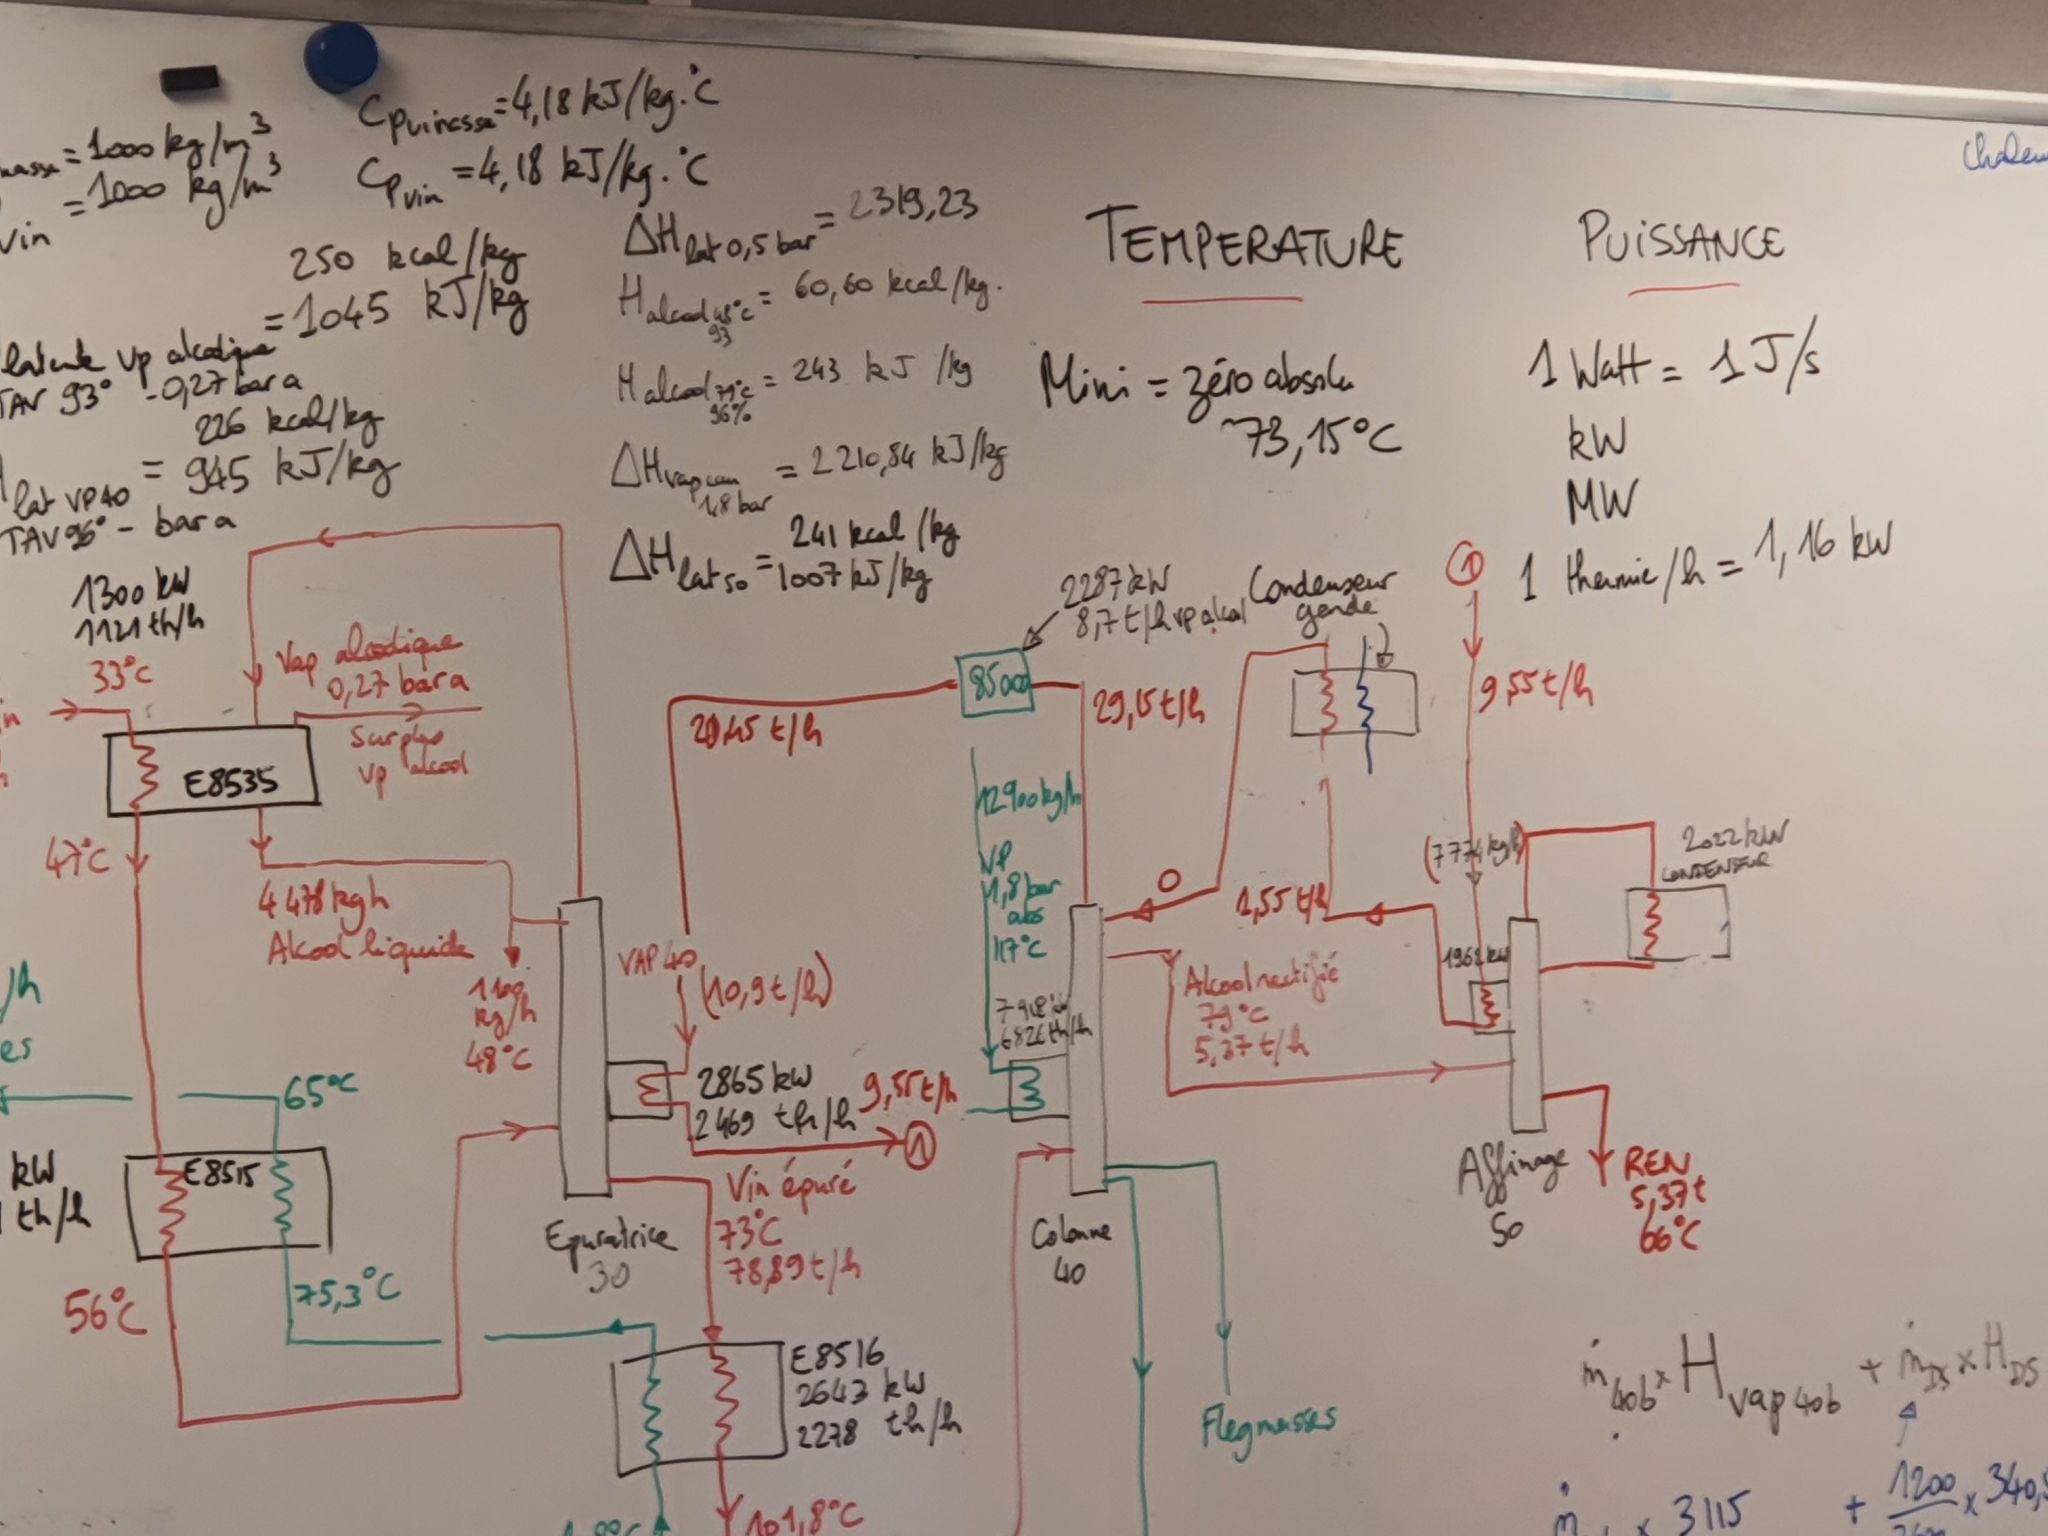 = 1000 kg/m³
vin = 1000 kg/m³
Cp vinasse = 4,18 kJ/kg.°C
Cp vin = 4,18 kJ/kg.°C
250 kcal/kg
= 1045 kJ/kg
latente vp alcoolique
TAV 93° - 0,27 bar a
226 kcal/kg
lat VP40 = 945 kJ/kg
TAV 96° - bar a
ΔH lat 0,5 bar = 2319,23
H alcool 48°C 93 = 60,60 kcal/kg.
H alcool 79°C 96% = 243 kJ/kg
ΔH vap 1,8 bar = 2210,84 kJ/kg
ΔH lat 50 = 241 kcal/kg
1007 kJ/kg
TEMPERATURE
Mini = zéro absolu
73,15°C
PUISSANCE
1 Watt = 1 J/s
kW
MW
1 thermie/h = 1,16 kW
Chaleu
1300 kW
1121 th/h
33°C
Vap alcoolique
0,27 bar a
Surplus
vp alcool
E8535
47°C
4478 kg h
Alcool liquide
1100
kg/h
48°C
65°C
/h
es
kW
th/h
E8515
75,3°C
56°C
Epuratrice
30
20,45 t/h
VAP 40
(10,9 t/h)
2865 kW
2469 th/h
9,55 t/h
1
Vin épuré
73°C
78,89 t/h
E8516
2643 kW
2278 th/h
101,8°C
2287 kW
8,7 t/h vp alcool
8500
29,15 t/h
12900 kg/h
VP
1,8 bar
abs
117°C
6826 th/h
Colonne
40
Flegmasses
Condenseur
garde
0
1,55 t/h
Alcool rectifié
79°C
5,37 t/h
1
9,55 t/h
(7774 kg/h)
1962 kW
2022 kW
CONDENSEUR
Affinage
50
REN
5,37t
66°C
ṁ40b x H vap 40b + ṁDS x H DS
x 3115 + 1200 x 340,